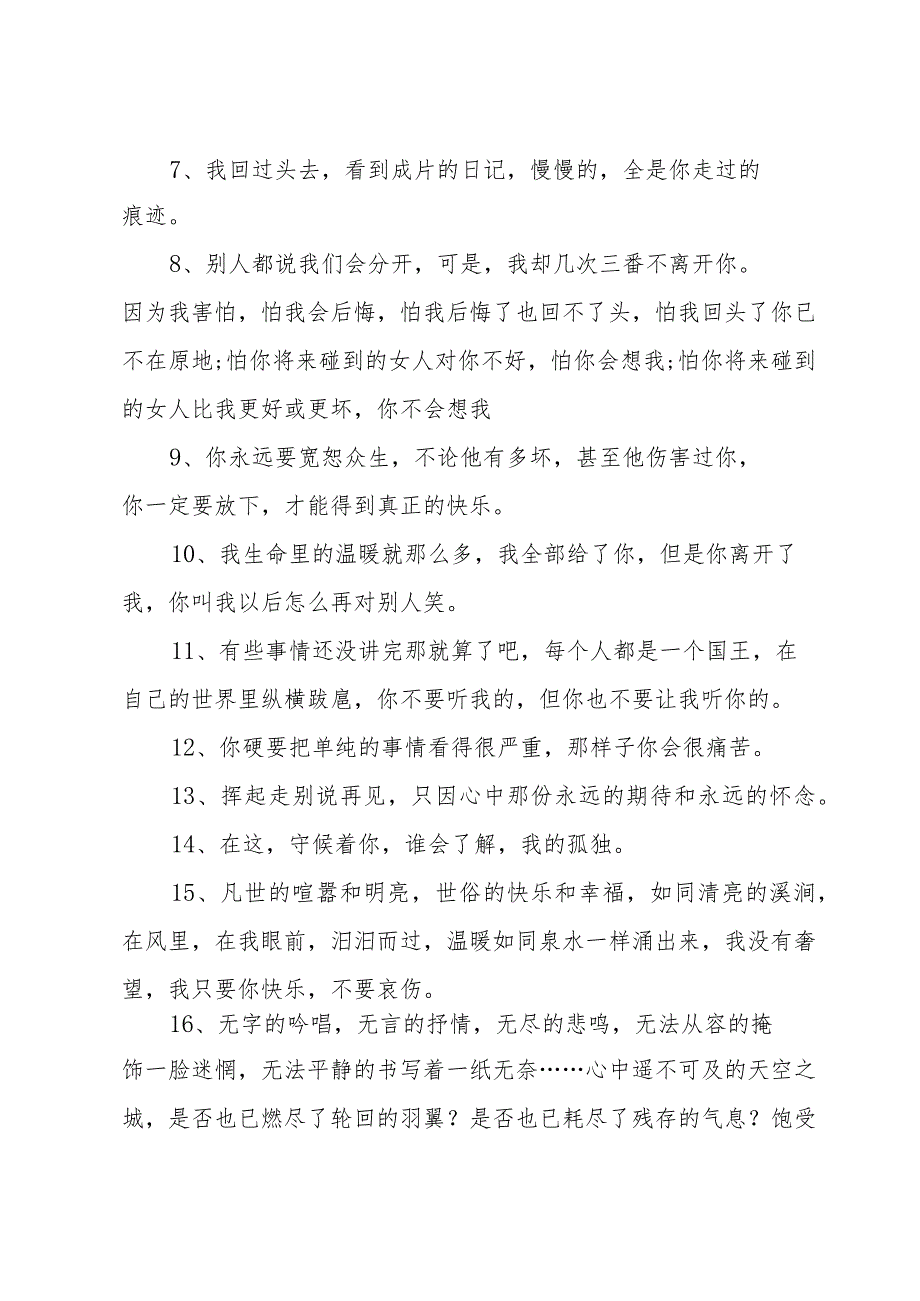 7、我回过头去，看到成片的日记，慢慢的，全是你走过的
痕迹。
8、别人都说我们会分开，可是，我却几次三番不离开你。
因为我害怕，怕我会后悔，怕我后悔了也回不了头，怕我回头了你已
不在原地;怕你将来碰到的女人对你不好，怕你会想我;怕你将来碰到
的女人比我更好或更坏，你不会想我
9、你永远要宽恕众生，不论他有多坏，甚至他伤害过你，
你一定要放下，才能得到真正的快乐。
10、我生命里的温暖就那么多，我全部给了你，但是你离开了
我，你叫我以后怎么再对别人笑。
11、有些事情还没讲完那就算了吧，每个人都是一个国王，在
自己的世界里纵横跋扈，你不要听我的，但你也不要让我听你的。
12、你硬要把单纯的事情看得很严重，那样子你会很痛苦。
13、挥起走别说再见，只因心中那份永远的期待和永远的怀念。
14、在这，守候着你，谁会了解，我的孤独。
15、凡世的喧嚣和明亮，世俗的快乐和幸福，如同清亮的溪涧，
在风里，在我眼前，汨汨而过，温暖如同泉水一样涌出来，我没有奢
望，我只要你快乐，不要哀伤。
16、无字的吟唱，无言的抒情，无尽的悲鸣，无法从容的掩
饰一脸迷惘，无法平静的书写着一纸无奈……心中遥不可及的天空之
城，是否也已燃尽了轮回的羽翼？是否也已耗尽了残存的气息？饱受